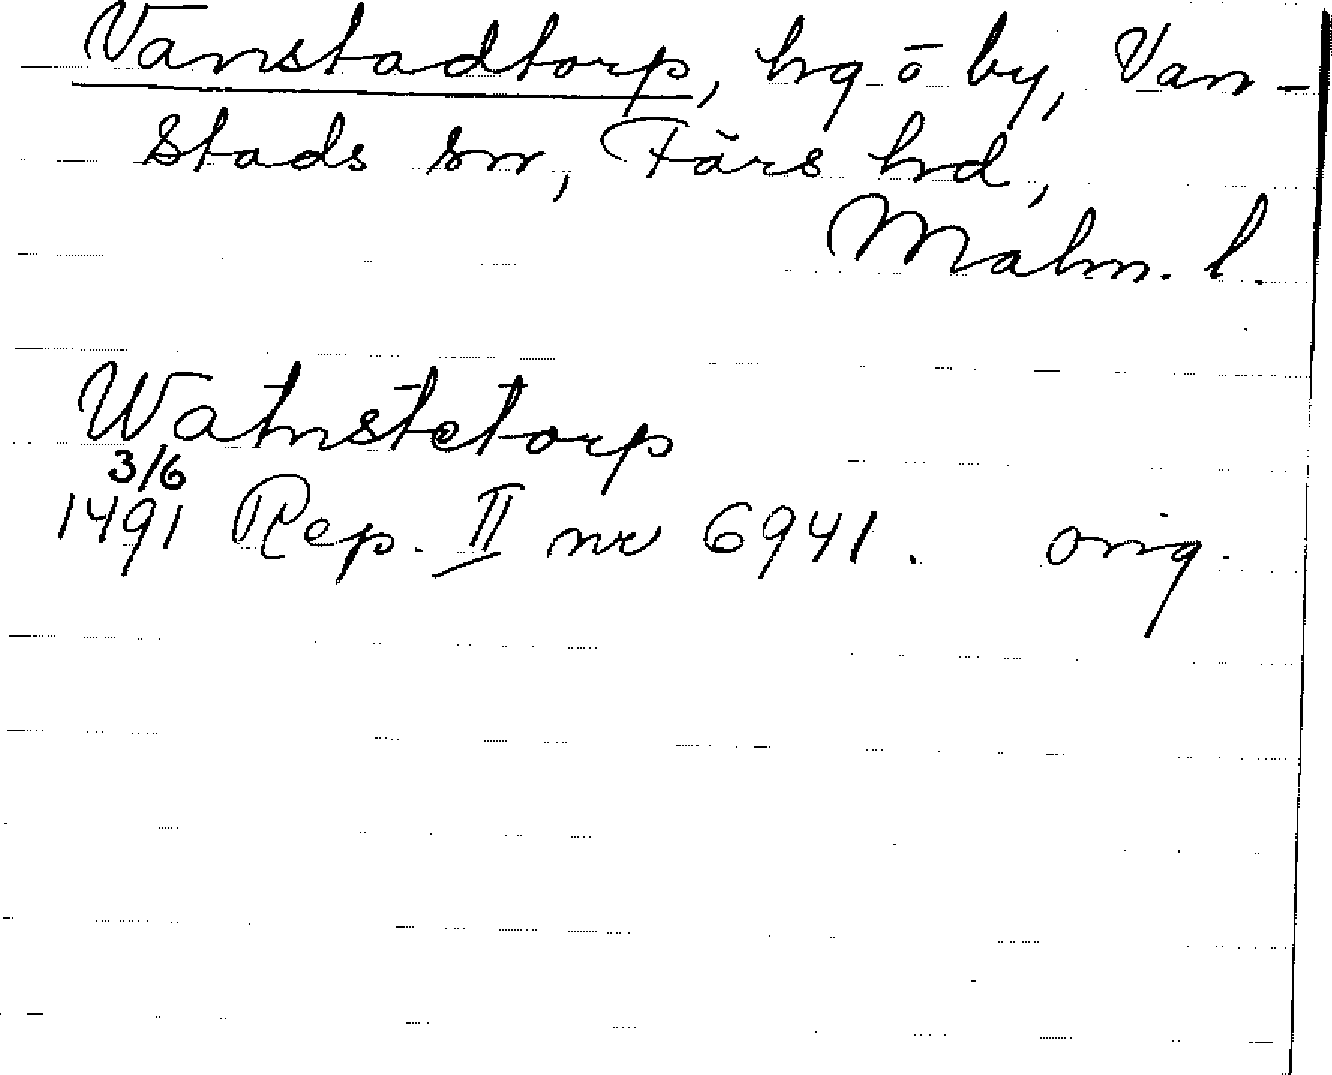 Vanstadtorp, hg ō by, Van-
stads sn, Färs hd,
Malm. l.
Watnstetorp
3/6
1491 Rep. II nr 6941. orig.